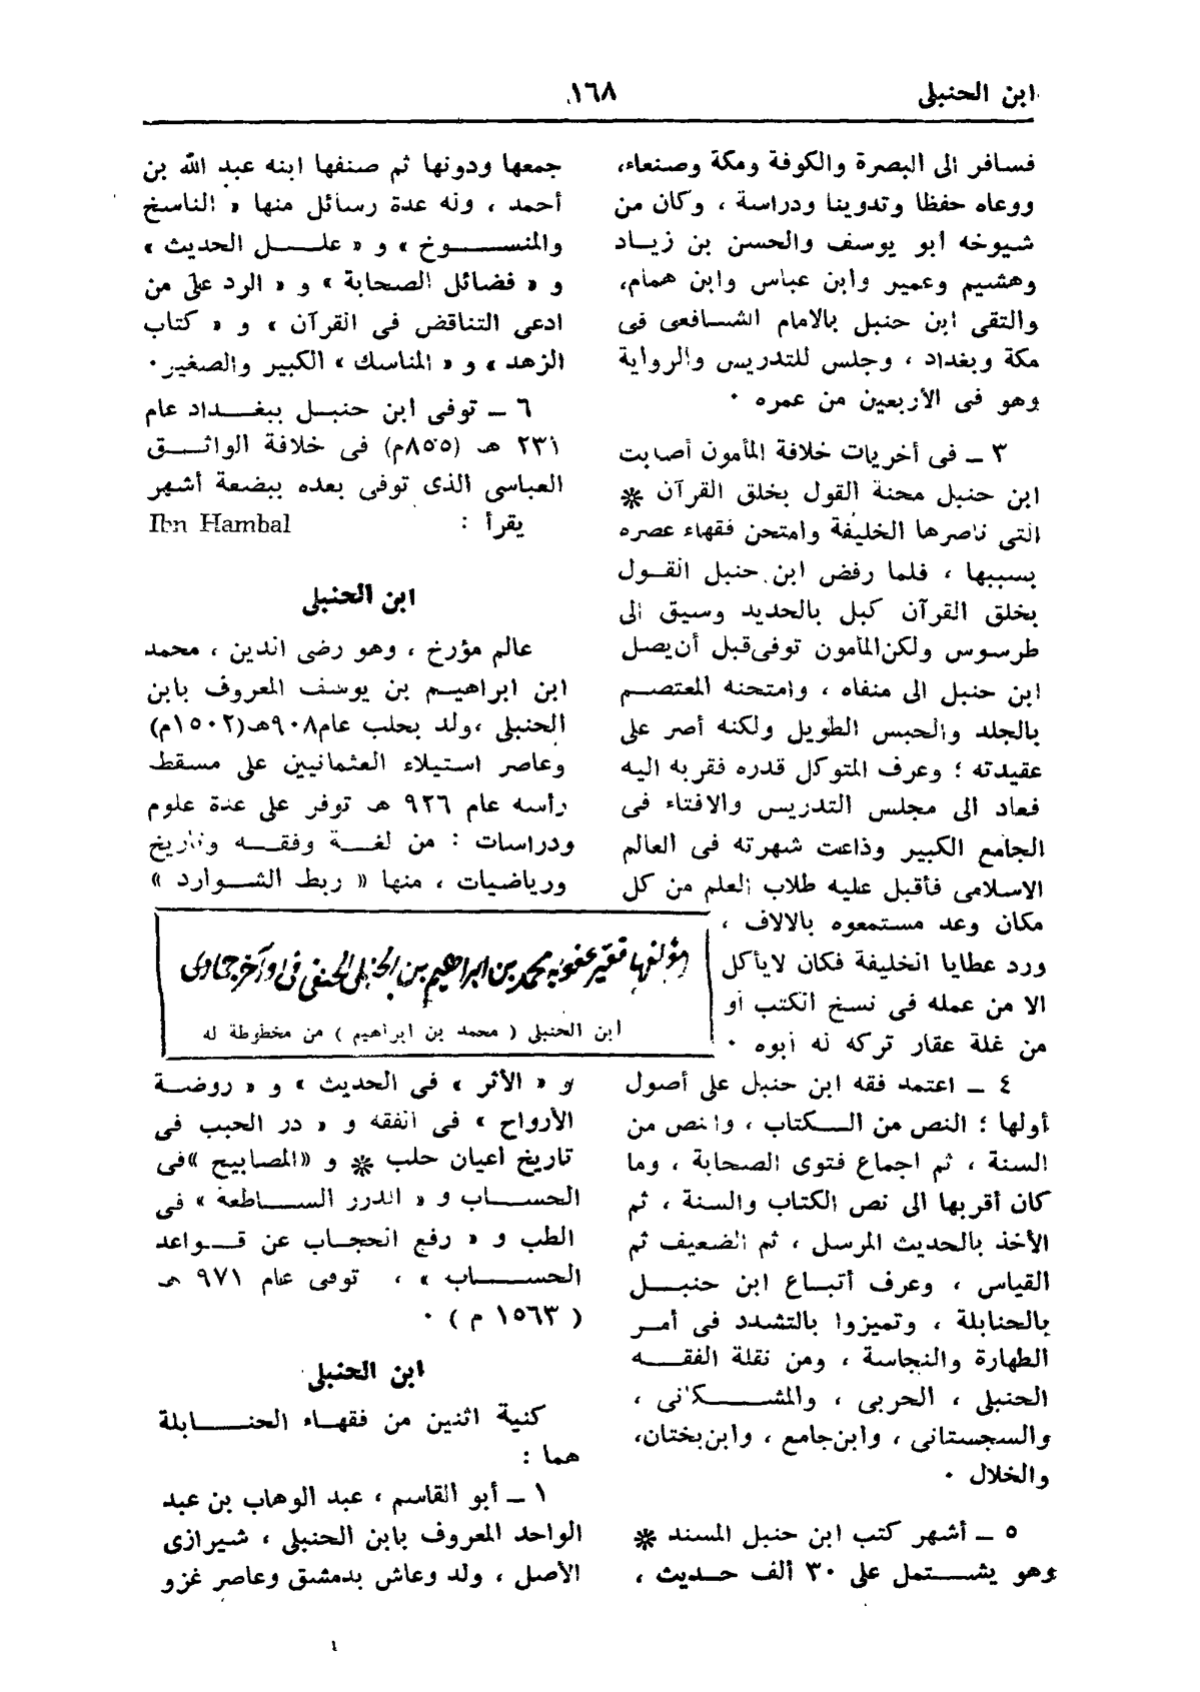 ابن الحنبلى
١٦٨
فسافر الى البصرة والكوفة ومكة وصنعاء،
ووعاه حفظا وتدوينا ودراسة ، وكان من
شيوخه أبو يوسف والحسن بن زيـاد
وهشيم وعمير وابن عباس وابن همام،
والتقى ابن حنبل بالامام الشـافعى فى
مكة وبغداد ، وجلس للتدريس والرواية
وهو فى الأربعين من عمره ٠
٣ ــ فى أخريات خلافة المأمون أصابت
ابن حنبل محنة القول بخلق القرآن *
التى ناصرها الخليفة وامتحن فقهاء عصره
بسببها ، فلما رفض ابن حنبل القـول
بخلق القرآن كبل بالحديد وسيق الى
طرسوس ولكن المأمون توفى قبل أن يصل
ابن حنبل الى منفاه ، وامتحنه المعتصم
بالجلد والحبس الطويل ولكنه أصر على
عقيدته ؛ وعرف المتوكل قدره فقربه اليه
فعاد الى مجلس التدريس والافتاء فى
الجامع الكبير وذاعت شهرته فى العالم
الاسلامى فأقبل عليه طلاب العلم من كل
مكان وعد مستمعوه بالالاف ،
ورد عطايا الخليفة فكان لا يأكل
الا من عمله فى نسخ الكتب أو
من غلة عقار تركه له أبوه ٠
٤ ــ اعتمد فقه ابن حنبل على أصول
أولها ؛ النص من الـكتاب ، والنص من
السنة ، ثم اجماع فتوى الصحابة ، وما
كان أقربها الى نص الكتاب والسنة ، ثم
الأخذ بالحديث المرسل ، ثم الضعيف ثم
القياس ، وعرف أتبـاع ابن حنبـل
بالحنابلة ، وتميزوا بالتشدد فى أمـر
الطهارة والنجاسة ، ومن نقلة الفقـه
الحنبلى ، الحربى ، والمشـكانى ،
والسجستانى ، وابن جامع ، وابن بختان،
والخلال ٠
٥ ــ أشهر كتب ابن حنبل المسند *
وهو يشـتمل على ٣٠ ألف حـديث ،
جمعها ودونها ثم صنفها ابنه عبد الله بن
أحمد ، وله عدة رسائل منها « الناسخ
والمنسـوخ » و « علـل الحديث »
و « فضائل الصحابة » و « الرد على من
ادعى التناقض فى القرآن » و « كتاب
الزهد » و « المناسك » الكبير والصغير٠
٦ ــ توفى ابن حنبـل ببغـداد عام
٢٣١ هـ (٨٥٥م) فى خلافة الواثـق
العباسى الذى توفى بعده ببضعة أشهر
يقرأ : Ibn Hambal
ابن الحنبلى
عالم مؤرخ ، وهو رضى الدين ، محمد
ابن ابراهيـم بن يوسف المعروف بابن
الحنبلى ،ولد بحلب عام٩٠٨هـ(١٥٠٢م)
وعاصر استيلاء العثمانيين على مسقط
رأسه عام ٩٢٦ هـ توفر على عدة علوم
ودراسات : من لغـة وفقـه وتاريخ
ورياضيات ، منها « ربط الشـوارد »
مؤلفها فقير عفو ربه محمد بن ابراهيم بن الحنبلى الحنفى فى أواخر جمادى
ابن الحنبلى ( محمد بن ابراهيم ) من مخطوطة له
و « الأثر » فى الحديث » و « روضـة
الأرواح » فى الفقه و « در الحبب فى
تاريخ أعيان حلب * و «المصابيح »فى
الحسـاب و « الدرر السـاطعة » فى
الطب و « رفع الحجـاب عن قـواعد
الحسـاب » ، توفى عام ٩٧١ هـ
( ١٥٦٣ م ) ٠
ابن الحنبلى
كنية اثنين من فقهـاء الحنـابلة
هما :
١ ــ أبو القاسم ، عبد الوهاب بن عبد
الواحد المعروف بابن الحنبلى ، شيرازى
الأصل ، ولد وعاش بدمشق وعاصر غزو